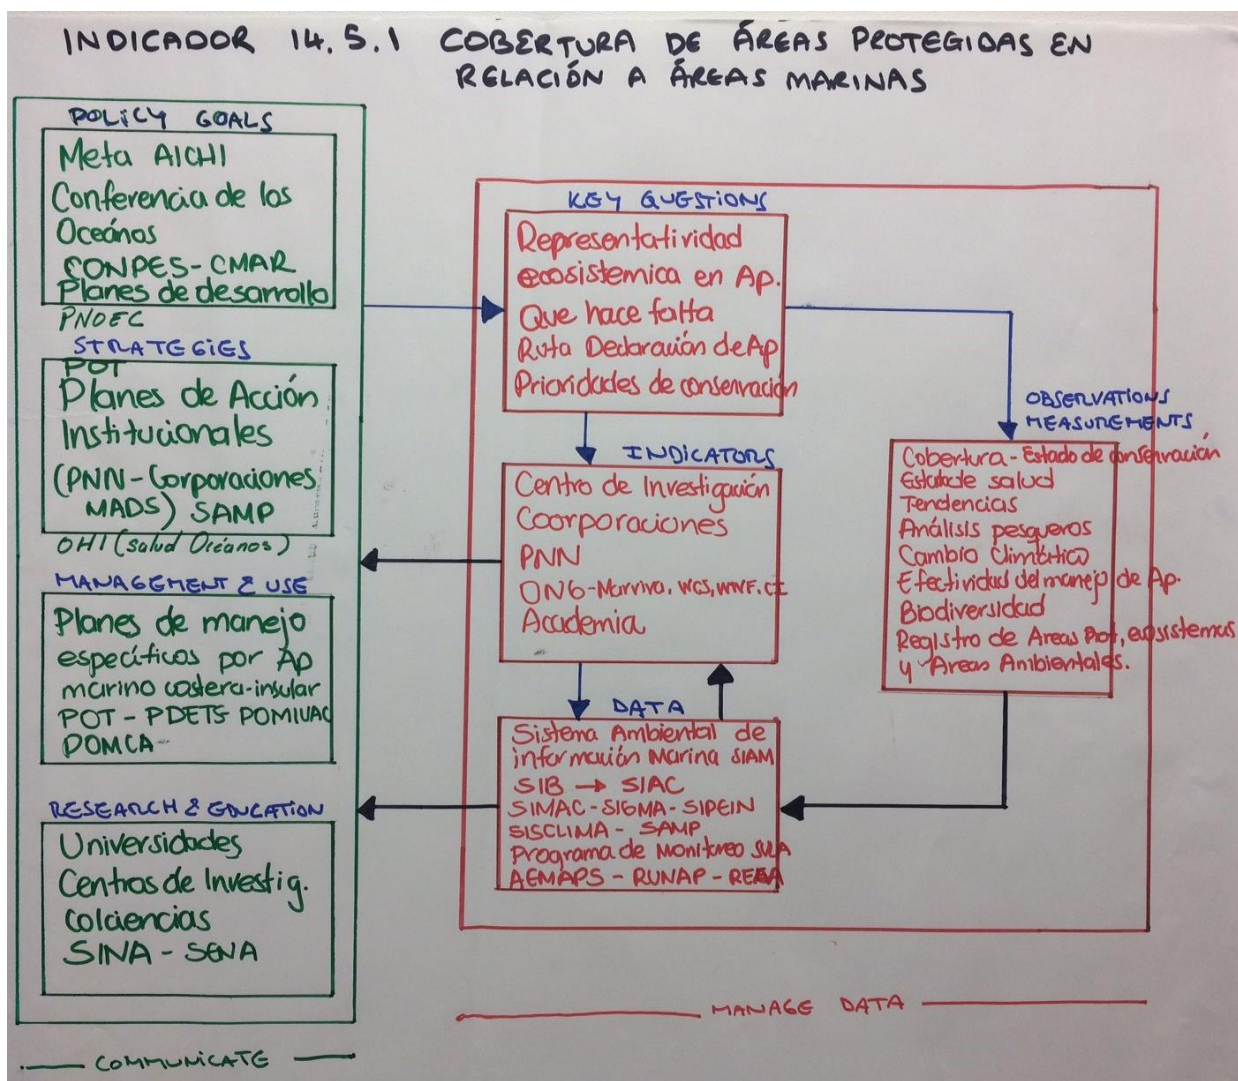 INDICADOR 14.5.1 COBERTURA DE ÁREAS PROTEGIDAS EN
RELACIÓN A ÁREAS MARINAS
POLICY GOALS
Meta AICHI
Conferencia de los
Oceános
CONPES - CMAR
Planes de desarrollo
PNOEC
STRATEGIES
POT
Planes de Acción
Institucionales
(PNN - Corporaciones
MADS) SAMP
OHI (salud Océanos)
MANAGEMENT & USE
Planes de manejo
específicos por Ap
marino costera-insular
POT - PDETS POMIUAC
POMCA
RESEARCH & EDUCATION
Universidades
Centros de Investig.
Colciencias
SINA - SENA
COMMUNICATE
KEY QUESTIONS
Representatividad
ecosistemica en Ap.
Que hace falta
Ruta Declaración de Ap
Prioridades de conservación
INDICATORS
Centro de Investigación
Coorporaciones
PNN
ONG - Marviva, WCS, WWF, CI
Academia
DATA
Sistema Ambiental de
información Marina SIAM
SIB → SIAC
SIMAC - SIGMA - SIPEIN
SISCLIMA - SAMP
Programa de Monitoreo SULA
AEMAPS - RUNAP - REAA
OBSERVATIONS
MEASUREMENTS
Cobertura - Estado de conservación
Estado de salud
Tendencias
Análisis pesqueros
Cambio Climático
Efectividad del manejo de Ap.
Biodiversidad
Registro de Areas Prot, ecosistemas
y Areas Ambientales.
MANAGE DATA